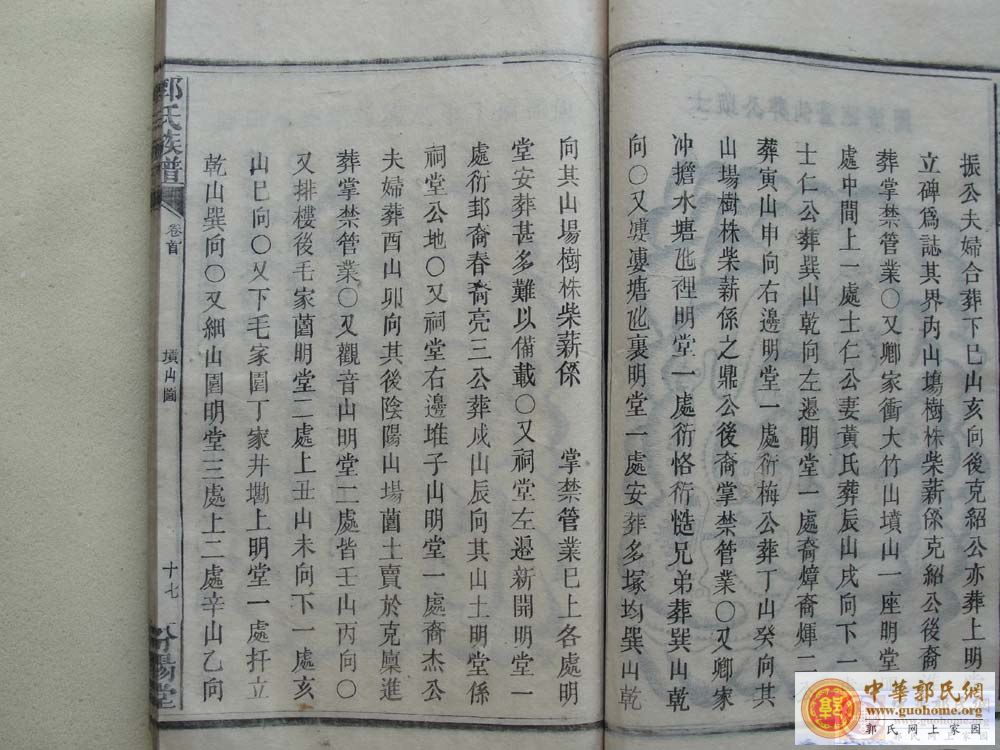 振公夫婦合葬下巳山亥向後克紹公亦葬上明
立碑爲誌其界內山塲樹株柴薪係克紹公後裔
葬掌禁管業〇又鄉家衝大竹山墳山一座明堂
處中間上一處士仁公妻黃氏葬辰山戌向下一
士仁公葬巽山乾向左邊明堂一處裔煒裔煇二
葬寅山申向右邊明堂一處衍梅公葬丁山癸向其
山場樹株柴薪係之鼎公後裔掌禁管業〇又鄉家
冲擔水塘 裡明堂一處衍恪衍 兄弟葬巽山乾
向〇又 塘 裏明堂一處安葬多塚均巽山乾
向其山場樹株柴薪係 掌禁管業巳上各處明
堂安葬甚多難以備載〇又祠堂左邊新開明堂一
處衍邦裔春裔亮三公葬戌山辰向其山土明堂係
祠堂公地〇又祠堂右邊堆子山明堂一處裔杰公
夫婦葬酉山卯向其後陰陽山場薗土賣於克廩進
葬掌禁管業〇又觀音山明堂二處皆壬山丙向〇
又排樓後毛家薗明堂二處上丑山未向下一處亥
山巳向〇又下毛家園丁家井墈上明堂一處扦立
乾山巽向〇又細山園明堂三處上二處辛山乙向
郭氏族譜
卷首
墳山圖
十七
汾陽堂
中華郭氏網
www.guohome.com
郭氏网上家园